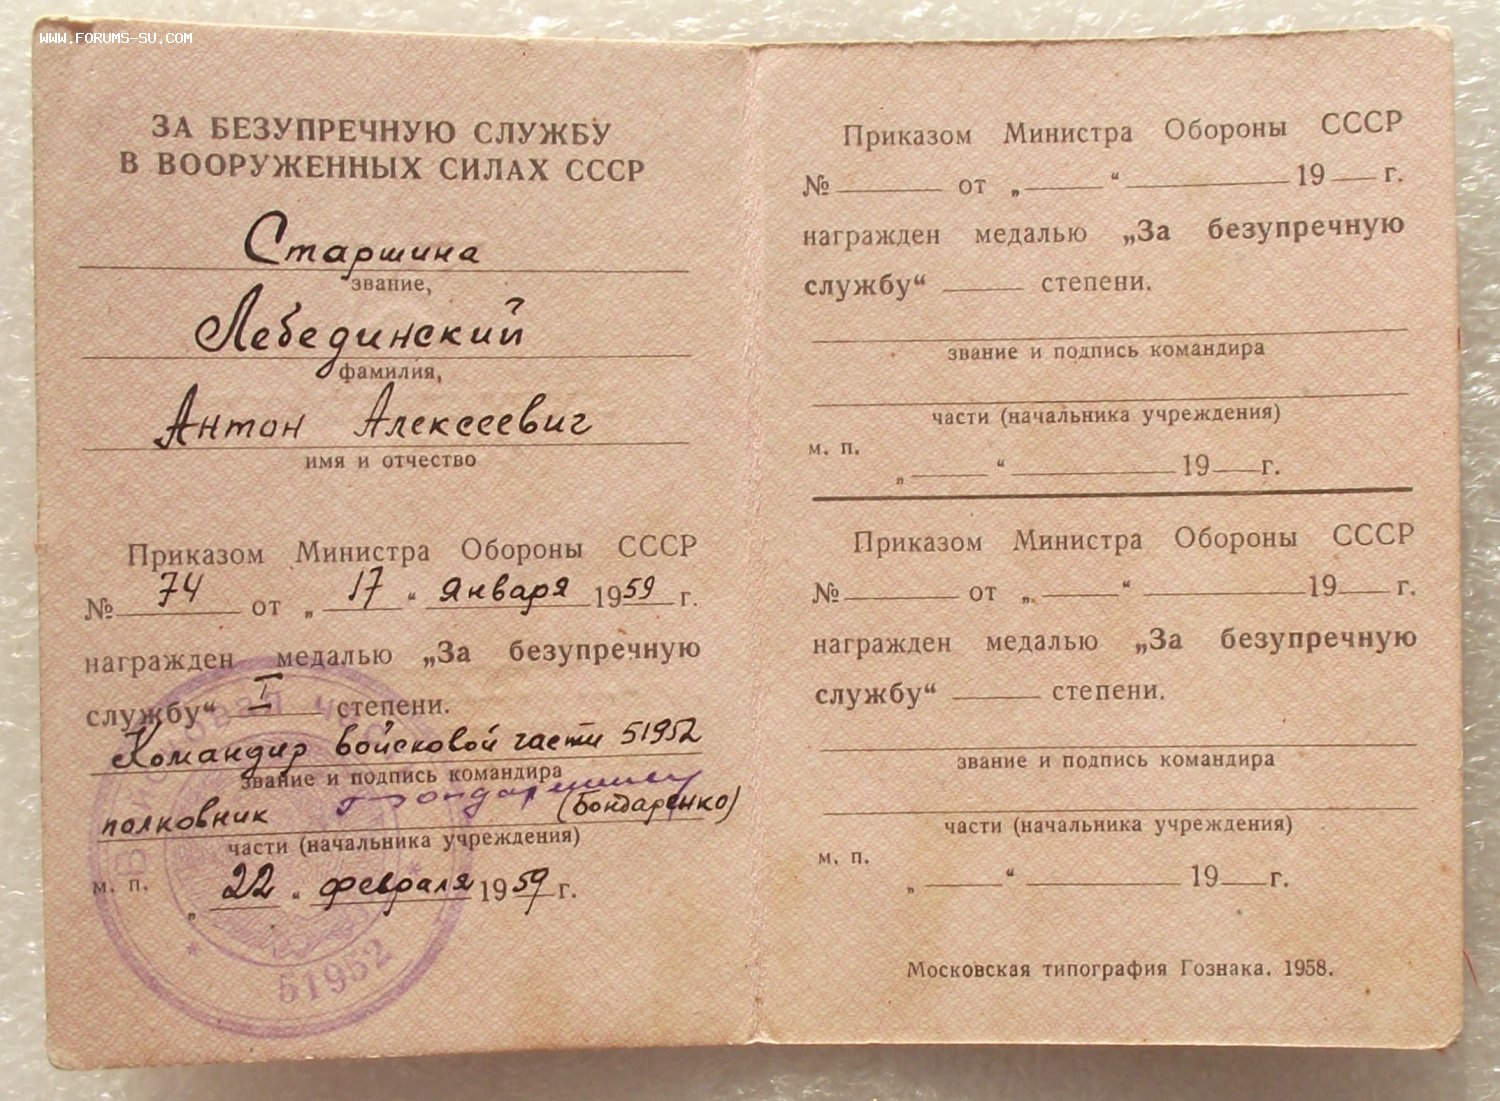 WWW.FORUMS-SU.COM
ЗА БЕЗУПРЕЧНУЮ СЛУЖБУ
В ВООРУЖЕННЫХ СИЛАХ СССР
Старшина
звание,
Лебединский
фамилия,
Антон Алексеевич
имя и отчество
Приказом Министра Обороны СССР
№ 74 от „ 17 “ января 1959 г.
награжден медалью „За безупречную
службу“ I степени.
Командир войсковой части 51952
звание и подпись командира
полковник (Бондаренко)
части (начальника учреждения)
м. п.
„ 22 “ февраля 1959 г.
51952
Приказом Министра Обороны СССР
№ от „ “ 19 г.
награжден медалью „За безупречную
службу“ степени.
звание и подпись командира
части (начальника учреждения)
м. п.
„ “ 19 г.
Приказом Министра Обороны СССР
№ от „ “ 19 г.
награжден медалью „За безупречную
службу“ степени.
звание и подпись командира
части (начальника учреждения)
м. п.
„ “ 19 г.
Московская типография Гознака. 1958.